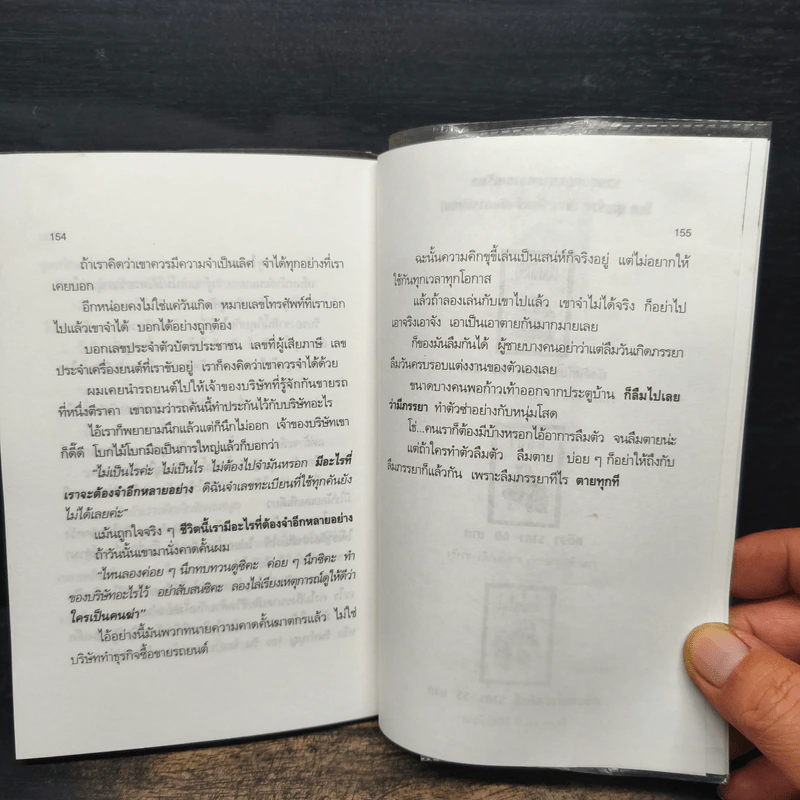 154
ถ้าเราคิดว่าเขาควรมีความจำเป็นเลิศ จำได้ทุกอย่างที่เรา
เคยบอก
อีกหน่อยคงไม่ใช่แค่วันเกิด หมายเลขโทรศัพท์ที่เราบอก
ไปแล้วเขาจำได้ บอกได้อย่างถูกต้อง
บอกเลขประจำตัวบัตรประชาชน เลขที่ผู้เสียภาษี เลข
ประจำเครื่องยนต์ที่เราขับอยู่ เราก็คงคิดว่าเขาควรจำได้ด้วย
ผมเคยนำรถยนต์ไปให้เจ้าของบริษัทที่รู้จักกันขายรถ
ที่หนึ่งตีราคา เขาถามว่ารถคันนี้ทำประกันไว้กับบริษัทอะไร
ไอ้เราก็พยายามนึกแล้วแต่ก็นึกไม่ออก เจ้าของบริษัทเขา
ก็ดี๊ดี โบกไม้โบกมือเป็นการใหญ่แล้วก็บอกว่า
“ไม่เป็นไรค่ะ ไม่เป็นไร ไม่ต้องไปจำมันหรอก มีอะไรที่
เราจะต้องจำอีกหลายอย่าง ดิฉันจำเลขทะเบียนที่ใช้ทุกคันยัง
ไม่ได้เลยค่ะ”
แม้นถูกใจจริง ๆ ชีวิตนี้เรามีอะไรที่ต้องจำอีกหลายอย่าง
ถ้าวันนั้นเขามานั่งคาดคั้นผม
“ไหนลองค่อย ๆ นึกทบทวนดูซิคะ ค่อย ๆ นึกซิคะ ทำ
ของบริษัทอะไรไว้ อย่าสับสนซิคะ ลองไล่เรียงเหตุการณ์ดูให้ดีว่า
ใครเป็นคนฆ่า”
ไอ้อย่างนี้มันพวกทนายความคาดคั้นฆาตกรแล้ว ไม่ใช่
บริษัททำธุรกิจซื้อขายรถยนต์
155
ฉะนั้นความคิกขุขี้เล่นเป็นเสน่ห์ก็จริงอยู่ แต่ไม่อยากให้
ใช้กันทุกเวลาทุกโอกาส
แล้วถ้าลองเล่นกับเขาไปแล้ว เขาจำไม่ได้จริง ก็อย่าไป
เอาจริงเอาจัง เอาเป็นเอาตายกันมากมายเลย
ก็ของมันลืมกันได้ ผู้ชายบางคนอย่าว่าแต่ลืมวันเกิดภรรยา
ลืมวันครบรอบแต่งงานของตัวเองเลย
ขนาดบางคนพอก้าวเท้าออกจากประตูบ้าน ก็ลืมไปเลย
ว่ามีภรรยา ทำตัวซ่าอย่างกับหนุ่มโสด
โช่...คนเราก็ต้องมีบ้างหรอกไอ้อาการลืมตัว จนลืมตายน่ะ
แต่ถ้าใครทำตัวลืมตัว ลืมตาย บ่อย ๆ ก็อย่าให้ถึงกับ
ลืมภรรยาก็แล้วกัน เพราะลืมภรรยาทีไร ตายทุกที